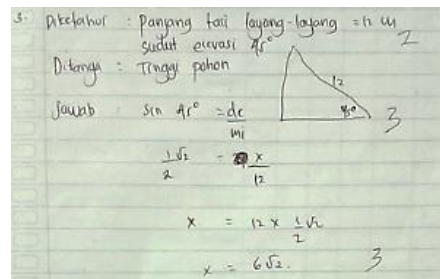 3. Diketahui : Panjang tali layang-layang = 12 m
sudut elevasi 45°
2
Ditanya : Tinggi pohon
12
45°
Jawab : sin 45° = de/mi
3
1/2 √2 = x/12
x = 12 x 1/2 √2
x = 6√2.
3